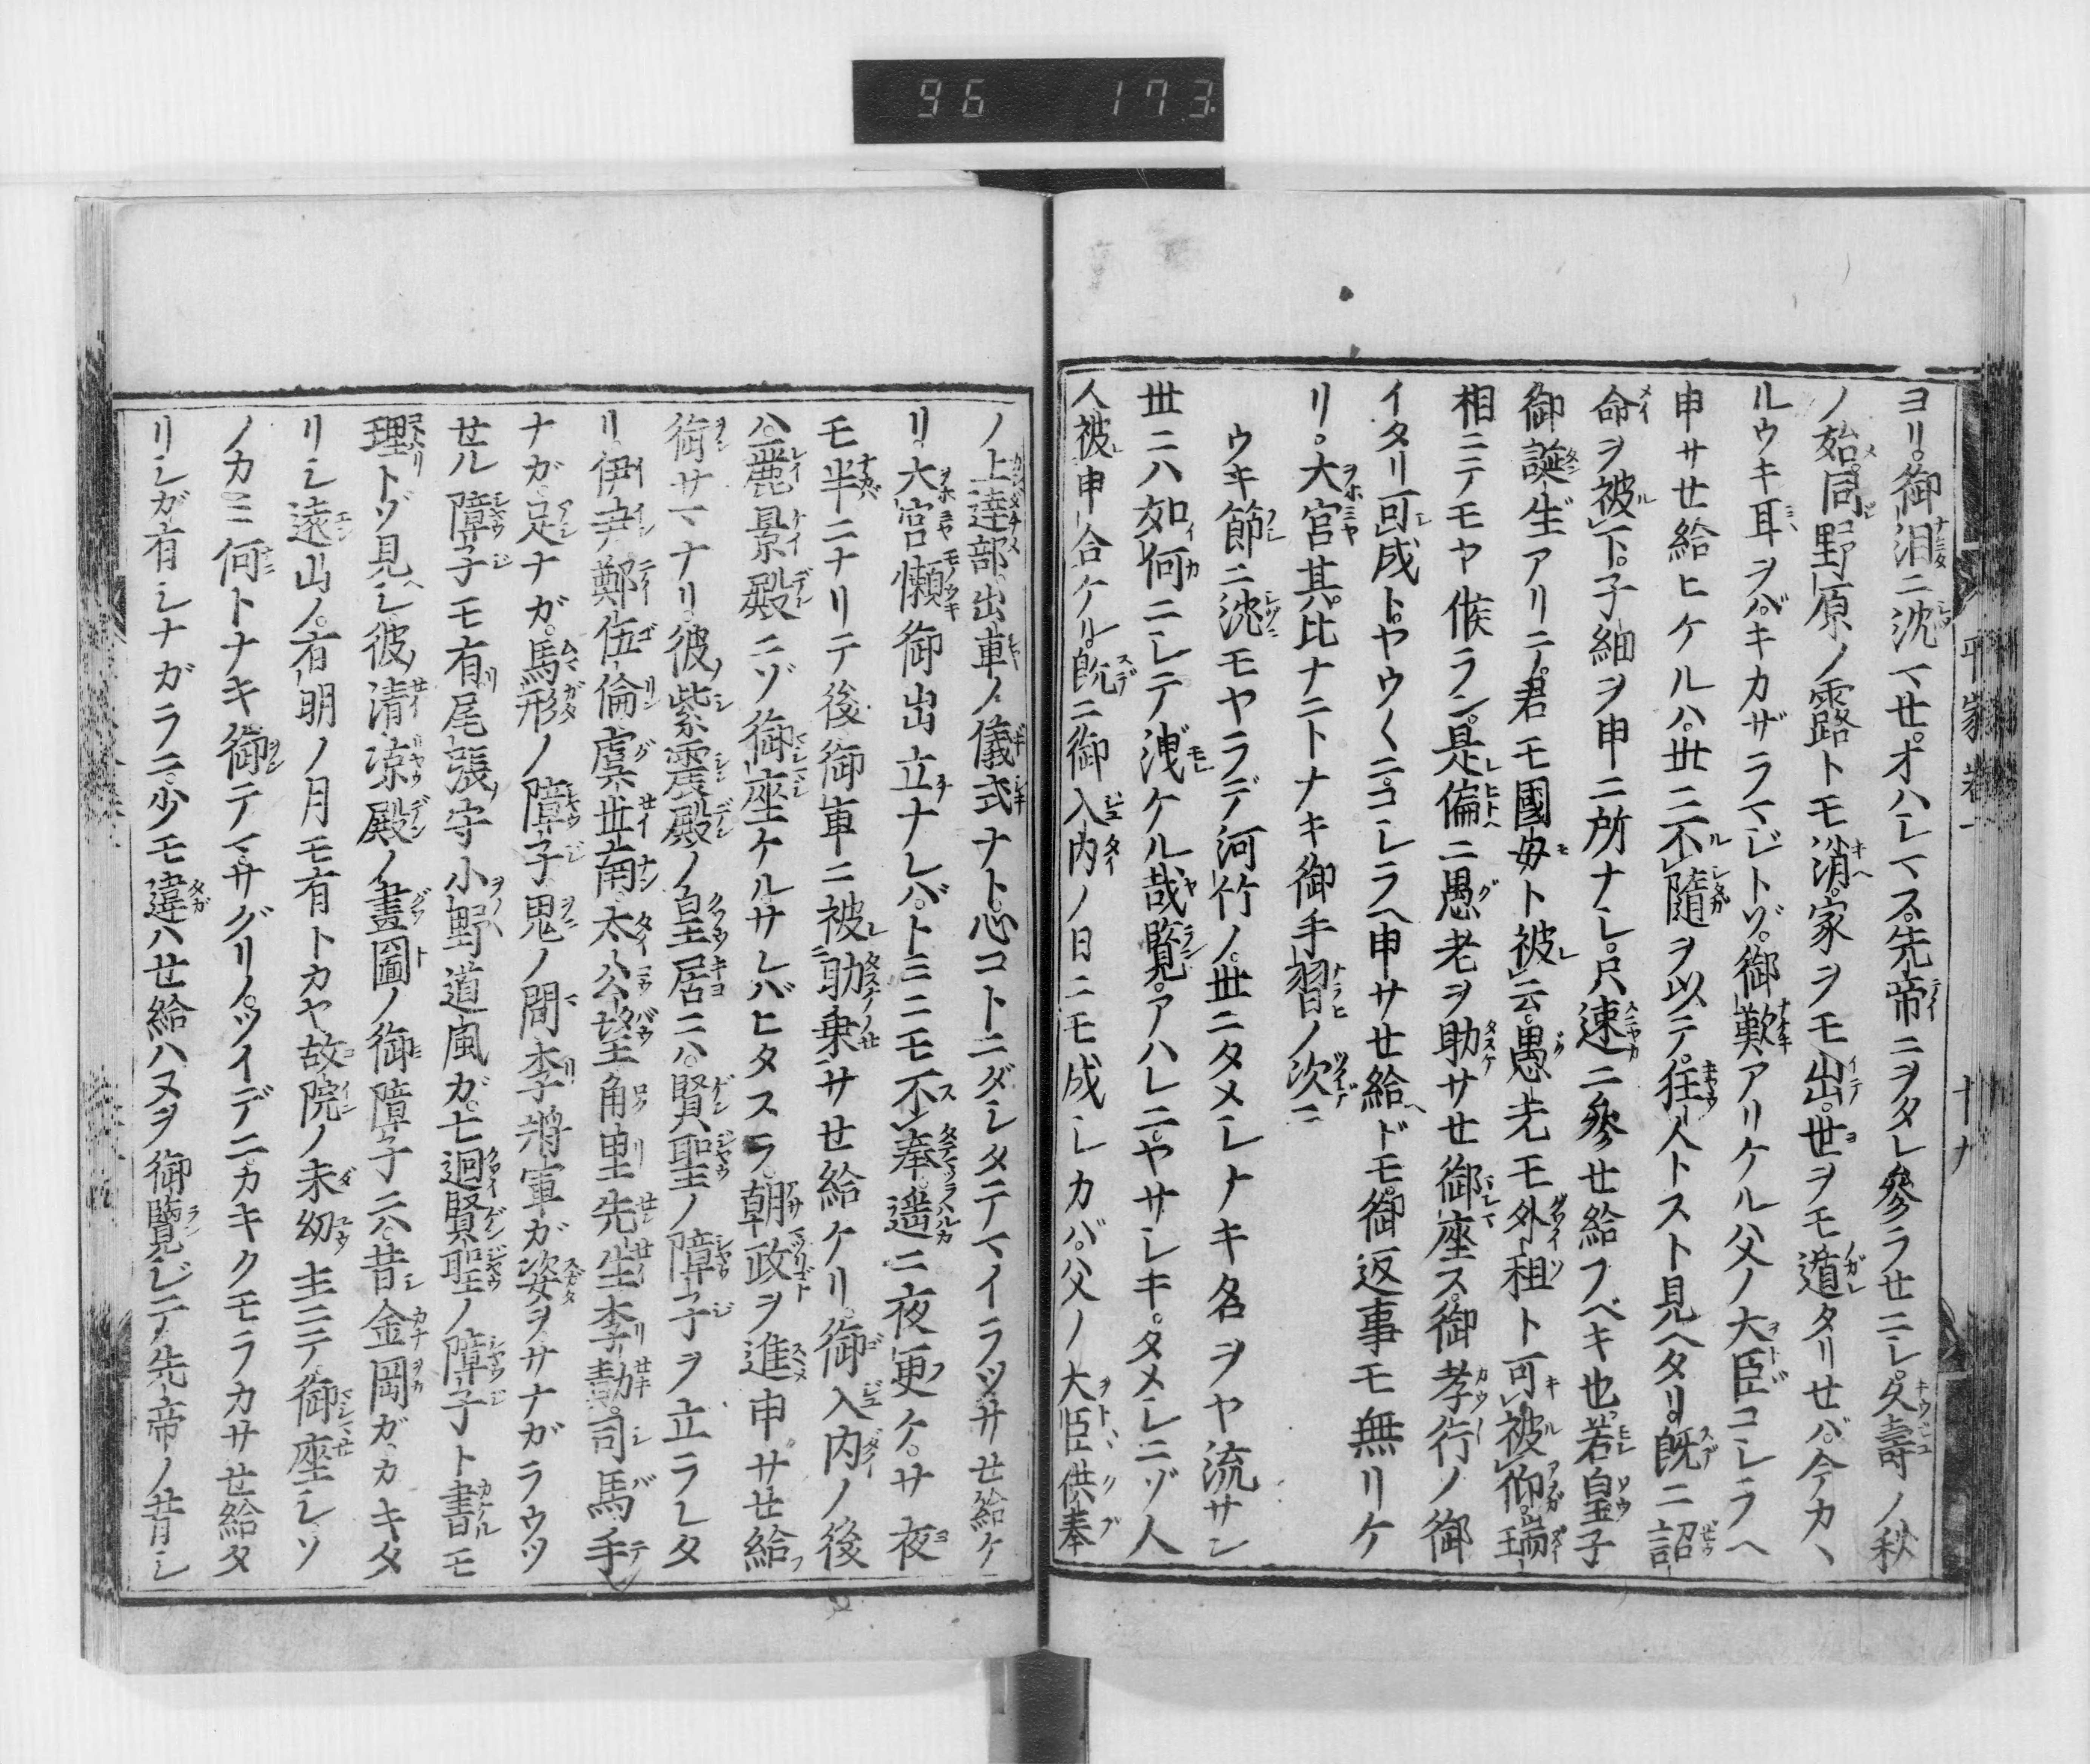 96 173
平家巻一 十九
ヨリ。御泪ニ沈マセ。オハシマス。先帝ニヲクレ参ラセニシ。久壽ノ秋
ノ始。同野原ノ露トモ消。家ヲモ出。世ヲモ遁タリセバ。今カヽ
ルウキ耳ヲバ。キカザラマジトゾ。御歎アリケル父ノ大臣コシラヘ
申サセ給ヒケルハ。世ニ不隨ヲ以テ。狂人トスト見ヘタリ。既ニ詔
命ヲ被下。子細ヲ申ニ所ナシ。只速ニ参セ給フベキ也。若皇子
御誕生アリテ。君モ國母ト被云。愚老モ外祖ト可被仰。瑞
相ニテモヤ候ラン。是偏ニ愚老ヲ助サセ御座ス。御孝行ノ御
イタリ可成トヤウ〱ニ。コシラヘ申サセ給ヘドモ。御返事モ無リケ
リ。大宮其比ナニトナキ御手習ノ次ニ
ウキ節ニ沈モヤラデ河竹ノ。世ニタメシナキ名ヲヤ流サン
世ニハ如何ニシテ洩ケル哉覧。アハレニヤサシキ。タメシニゾ人
人被申合ケル。既ニ御入内ノ日ニモ成シカバ。父ノ大臣供奉
ノ上達部出車ノ儀式ナト。心コトニダシタテマイラツサセ給ケ
リ。大宮懶御出立ナレバ。トミニモ不奉。遥ニ夜更ケ。サ夜
モ半ニナリテ後御車ニ被助乗サセ給ケリ。御入内ノ後
ハ。麗景殿ニゾ御座ケルサレバヒタスラ。朝政ヲ進申サセ給
御サマナリ。彼紫宸殿ノ皇居ニハ。賢聖ノ障子ヲ立ラレタ
リ。伊尹鄭伍倫虞世南。太公望角里先生李勣。司馬手
ナガ足ナガ。馬形ノ障子鬼ノ間李将軍ガ姿ヲサナガラウツ
セル障子モ有。尾張守小野道風ガ。七廻賢聖ノ障子ト書モ
理トゾ見ヘシ彼清凉殿ノ畫圖ノ御障子ニハ。昔金岡ガカキタ
リシ遠山ノ。有明ノ月モ有トカヤ故院ノ未幼主ニテ御座シソ
ノカミ何トナキ御テマサグリノ。ツイデニ。カキクモラカサセ給タ
リシガ有シナガラニ。少モ違ハセ給ハヌヲ御覧ジテ。先帝ノ昔シ